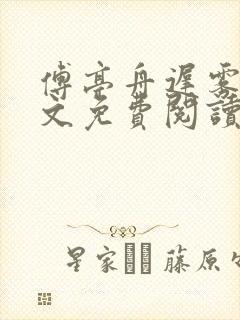 傅亭舟遲霧
文免費閱讀
星家 藤原